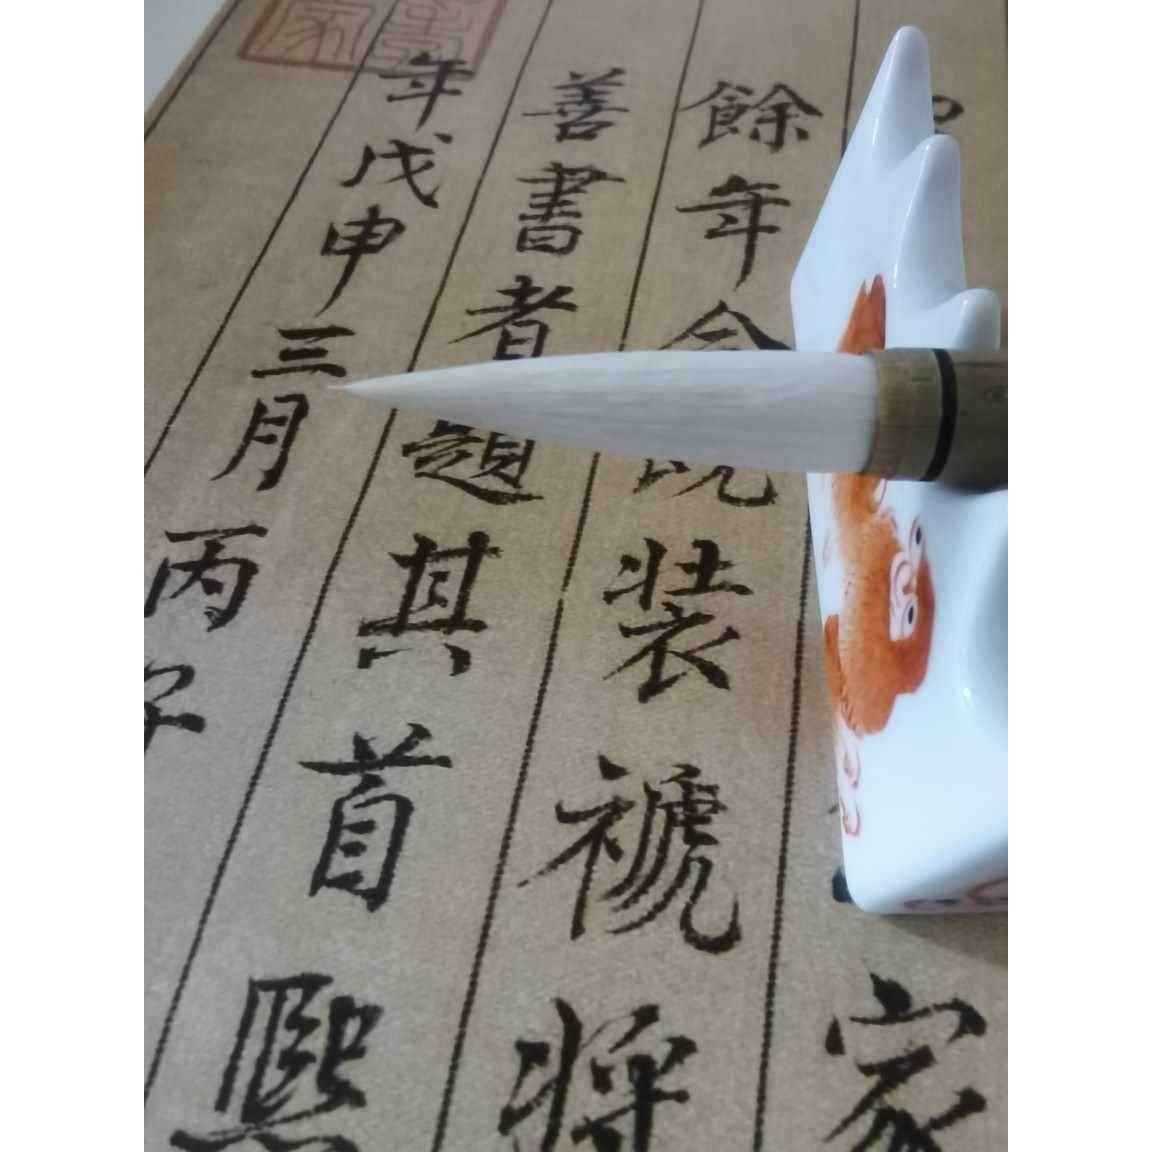 家
餘年今既裝褫將
善書者題其首熙
年戊申三月丙子